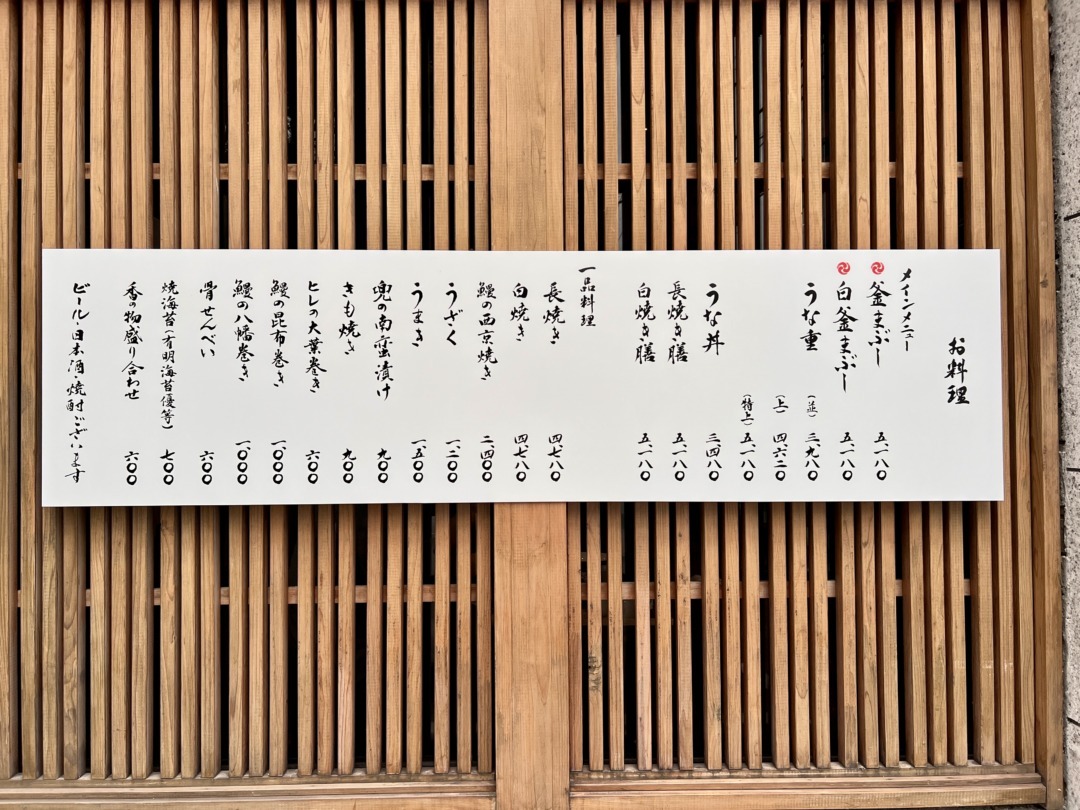 お料理
メインメニュー
釜まぶし 五、一八〇
白釜まぶし 五、一八〇
うな重 (並) 三、九八〇
(上) 四、六二〇
(特上) 五、一八〇
うな丼 三、四八〇
長焼き膳 五、一八〇
白焼き膳 五、一八〇
一品料理
長焼き 四、七八〇
白焼き 四、七八〇
鰻の西京焼き 二、四〇〇
うざく 一、二〇〇
うまき 一、五〇〇
兜の南蛮漬け 九〇〇
きも焼き 九〇〇
ヒレの大葉巻き 六〇〇
鰻の昆布巻き 一、〇〇〇
鰻の八幡巻き 一、〇〇〇
骨せんべい 六〇〇
焼海苔(有明海苔優等) 七〇〇
香の物盛り合わせ 六〇〇
ビール・日本酒・焼酎ございます